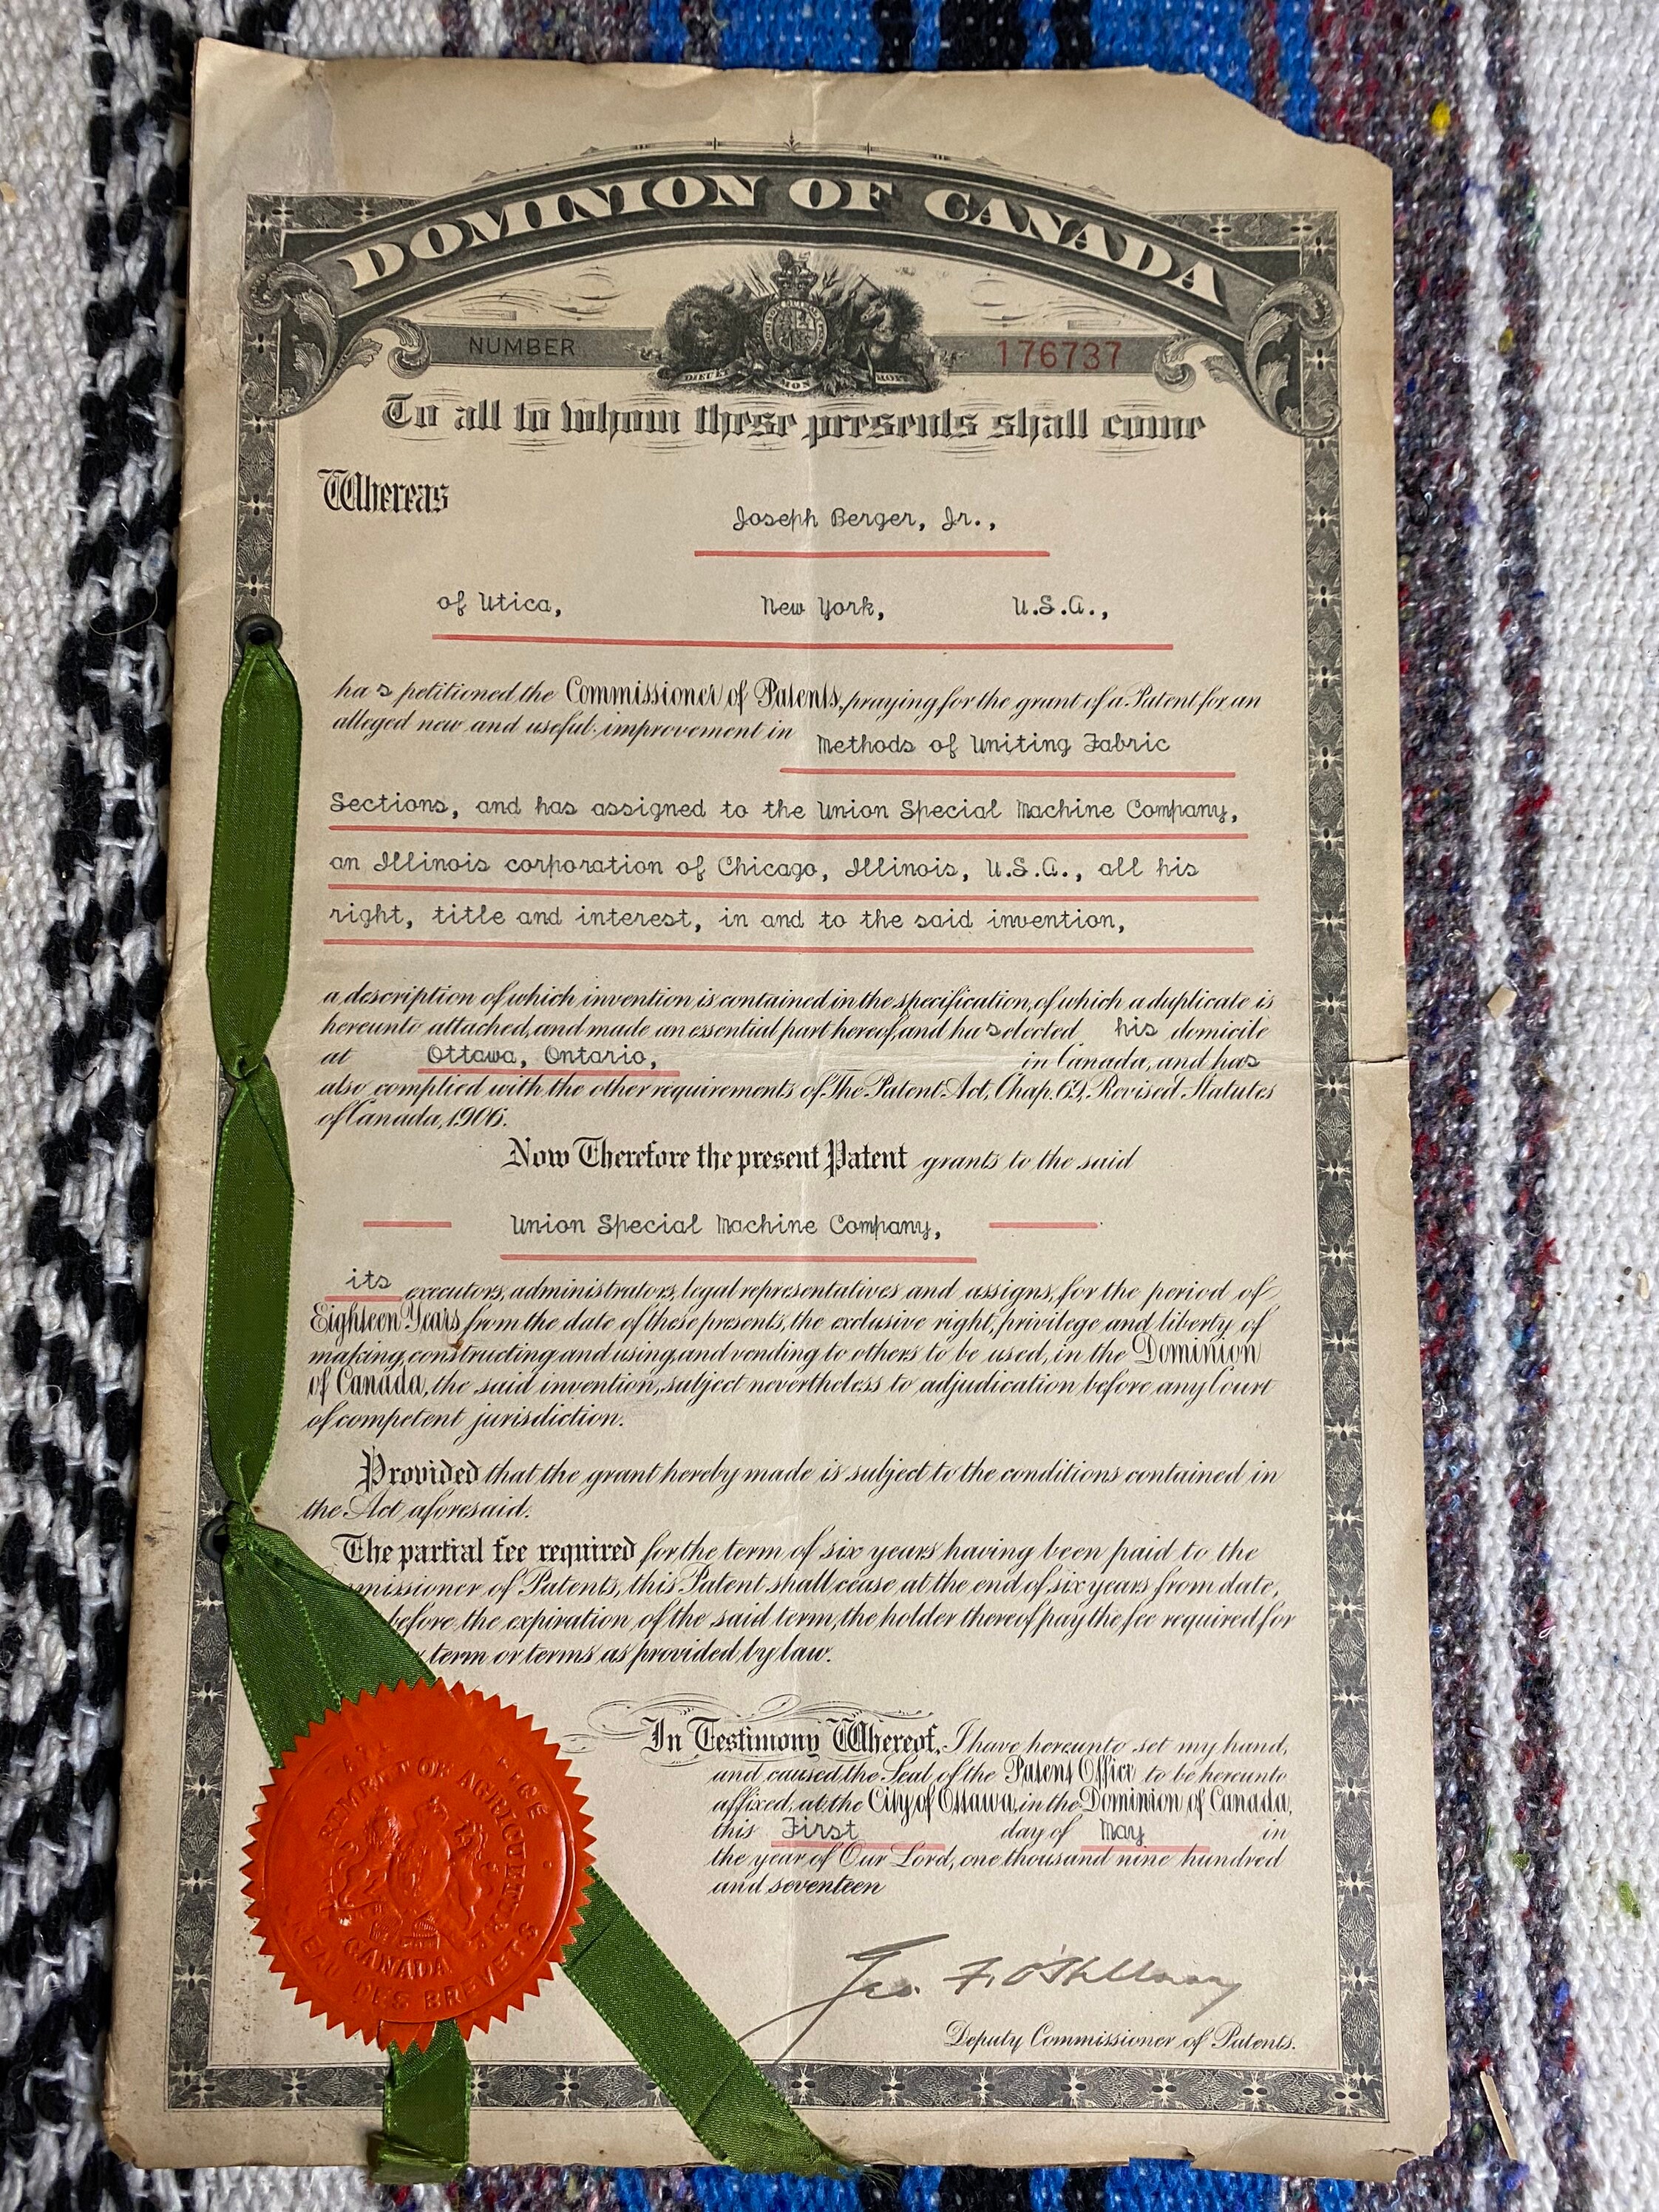 DOMINION OF CANADA
NUMBER 176737
DIEU ET MON
To all to whom these presents shall come
Whereas
Joseph Berger, Jr.,
of Utica, New York, U.S.A.,
has petitioned the Commissioner of Patents, praying for the grant of a Patent for an
alleged new and useful improvement in
Methods of Uniting Fabric
Sections, and has assigned to the Union Special Machine Company,
an Illinois corporation of Chicago, Illinois, U.S.A., all his
right, title and interest, in and to the said invention,
a description of which invention is contained in the specification, of which a duplicate is
hereunto attached, and made an essential part hereof, and has elected his domicile
at Ottawa, Ontario, in Canada, and has
also complied with the other requirements of The Patent Act, Chap. 69, Revised Statutes
of Canada, 1906.
Now Therefore the present Patent grants to the said
Union Special Machine Company,
its executors, administrators, legal representatives and assigns, for the period of
Eighteen Years from the date of these presents, the exclusive right, privilege and liberty of
making, constructing and using, and vending to others to be used, in the Dominion
of Canada, the said invention, subject nevertheless to adjudication before any Court
of competent jurisdiction.
Provided that the grant hereby made is subject to the conditions contained in
the Act aforesaid.
The partial fee required for the term of six years having been paid to the
missioner of Patents, this Patent shall cease at the end of six years from date,
before the expiration of the said term, the holder thereof pay the fee required for
term or terms as provided by law.
In Testimony Whereof, I have hereunto set my hand,
and caused the Seal of the Patent Office to be hereunto
affixed, at the City of Ottawa, in the Dominion of Canada,
this First day of May in
the year of Our Lord, one thousand nine hundred
and seventeen
Geo. F. O'Halloran
Deputy Commissioner of Patents.
OF AGRICULTURE
CANADA
DES BREVETS